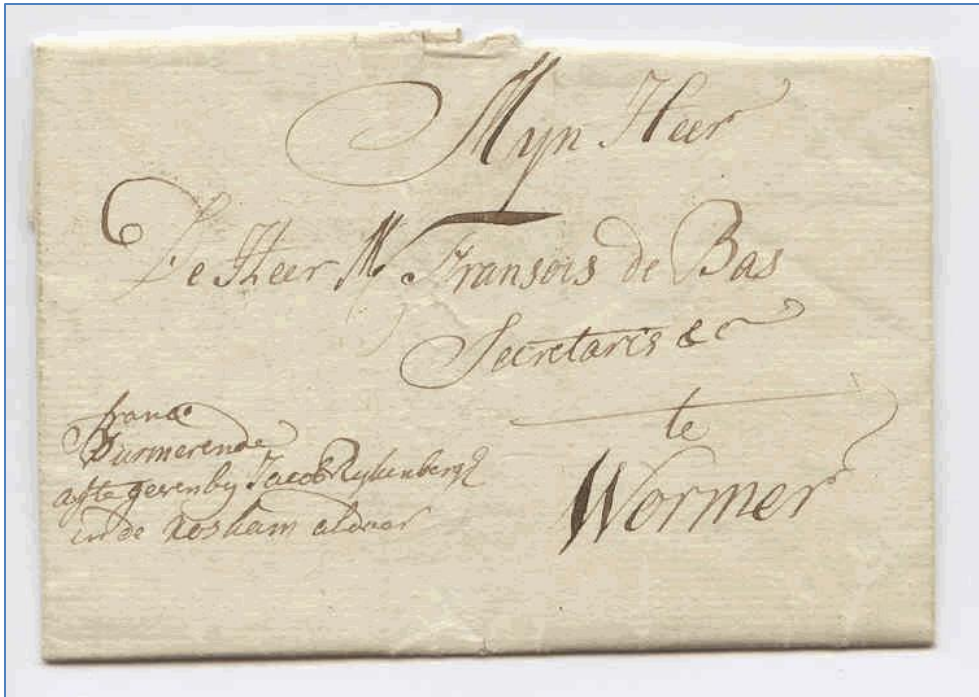 Myn Heer
De Heer Mr Fransois de Bas
Secretaris &c
te
Wormer
franco
Purmerende
af te geven by Jacob Rykenbergh
in de Roskam aldaar